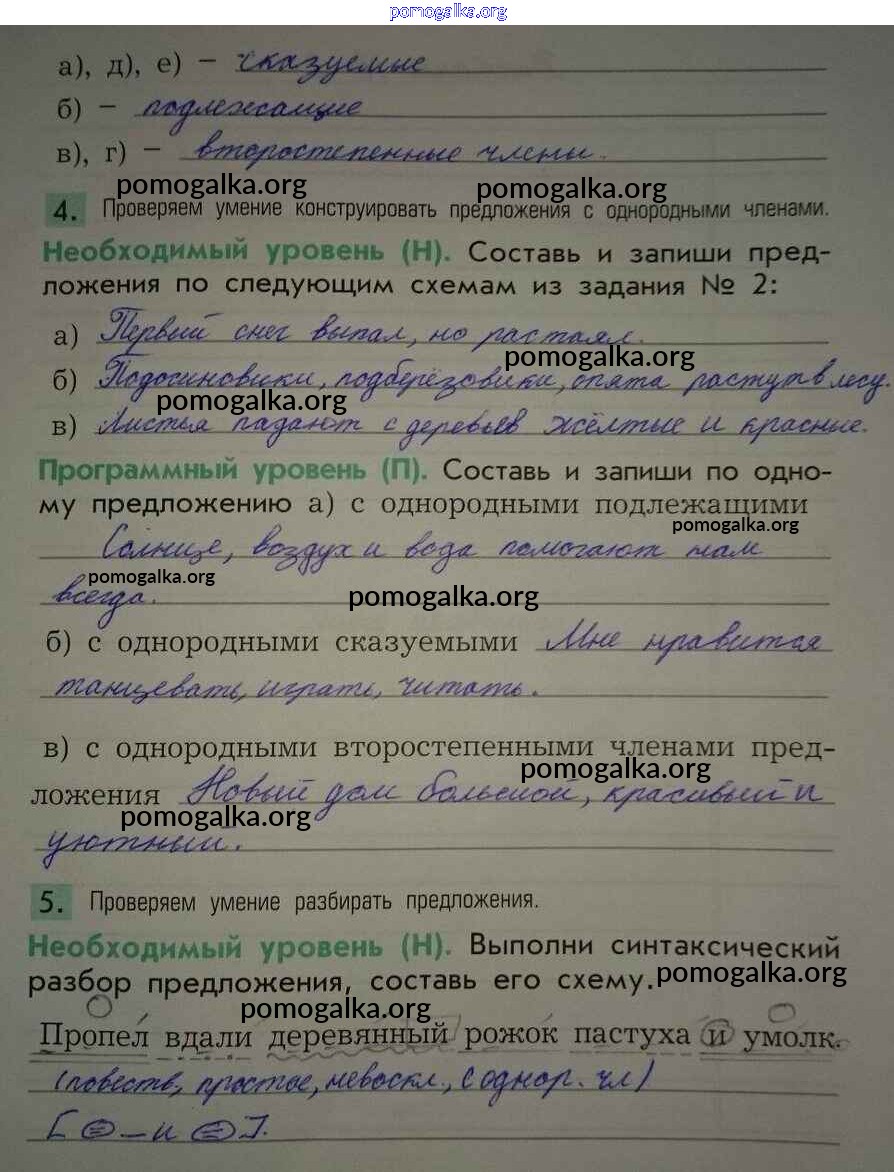 pomogalka.org
а), д), е) – сказуемые
б) – подлежащие
в), г) – второстепенные члены.
pomogalka.org pomogalka.org
4. Проверяем умение конструировать предложения с однородными членами.
Необходимый уровень (Н). Составь и запиши пред-
ложения по следующим схемам из задания № 2:
а) Первый снег выпал, но растаял.
pomogalka.org
б) Подосиновики, подберёзовики, опята растут в лесу.
pomogalka.org
в) Листья падают с деревьев жёлтые и красные.
Программный уровень (П). Составь и запиши по одно-
му предложению а) с однородными подлежащими
pomogalka.org
Солнце, воздух и вода помогают нам
pomogalka.org
всегда.
pomogalka.org
б) с однородными сказуемыми Мне нравится
танцевать, играть, читать.
в) с однородными второстепенными членами пред-
pomogalka.org
ложения Новый дом большой, красивый и
pomogalka.org
уютный.
5. Проверяем умение разбирать предложения.
Необходимый уровень (Н). Выполни синтаксический
разбор предложения, составь его схему.
pomogalka.org
pomogalka.org
Пропел вдали деревянный рожок пастуха и умолк.
(повеств, простое, невоскл., с однор. чл)
[ – и ].